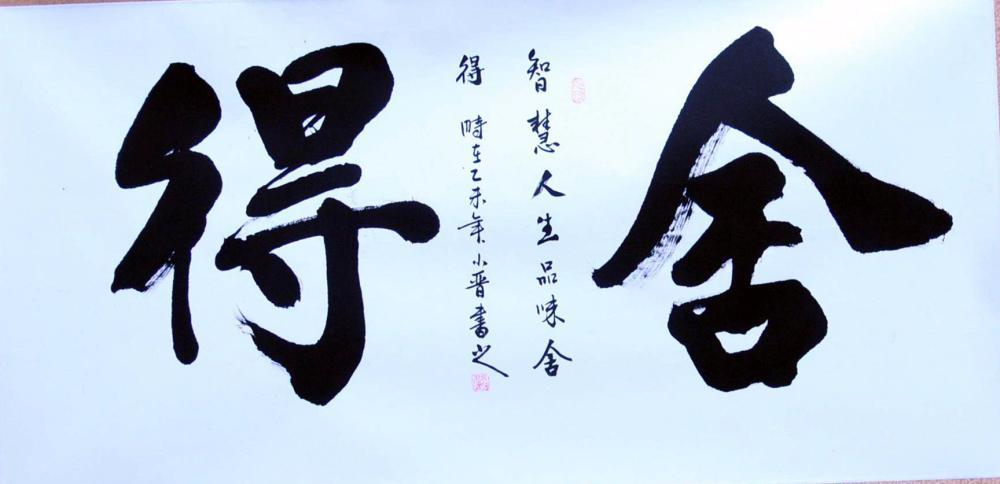 舍得
智慧人生品味舍
得 時在乙未年小晋書之